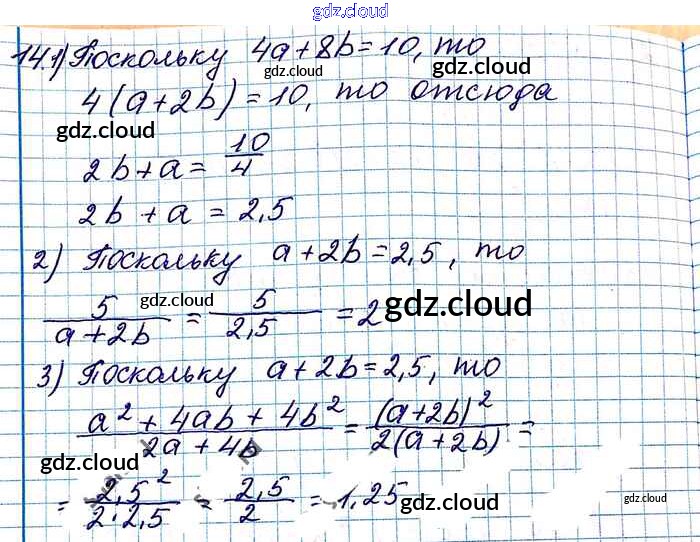 gdz.cloud
14.1) Поскольку 4a+8b=10, то
gdz.cloud gdz.cloud
4(a+2b)=10, то отсюда
gdz.cloud
2b+a=10/4
2b+a=2,5
2) Поскольку a+2b=2,5, то
5/(a+2b) = 5/2,5 = 2
gdz.cloud gdz.cloud
3) Поскольку a+2b=2,5, то
(a²+4ab+4b²)/(2a+4b) = (a+2b)²/2(a+2b) =
gdz.cloud gdz.cloud
= 2,5²/2·2,5 = 2,5/2 = 1,25
gdz.cloud gdz.cloud